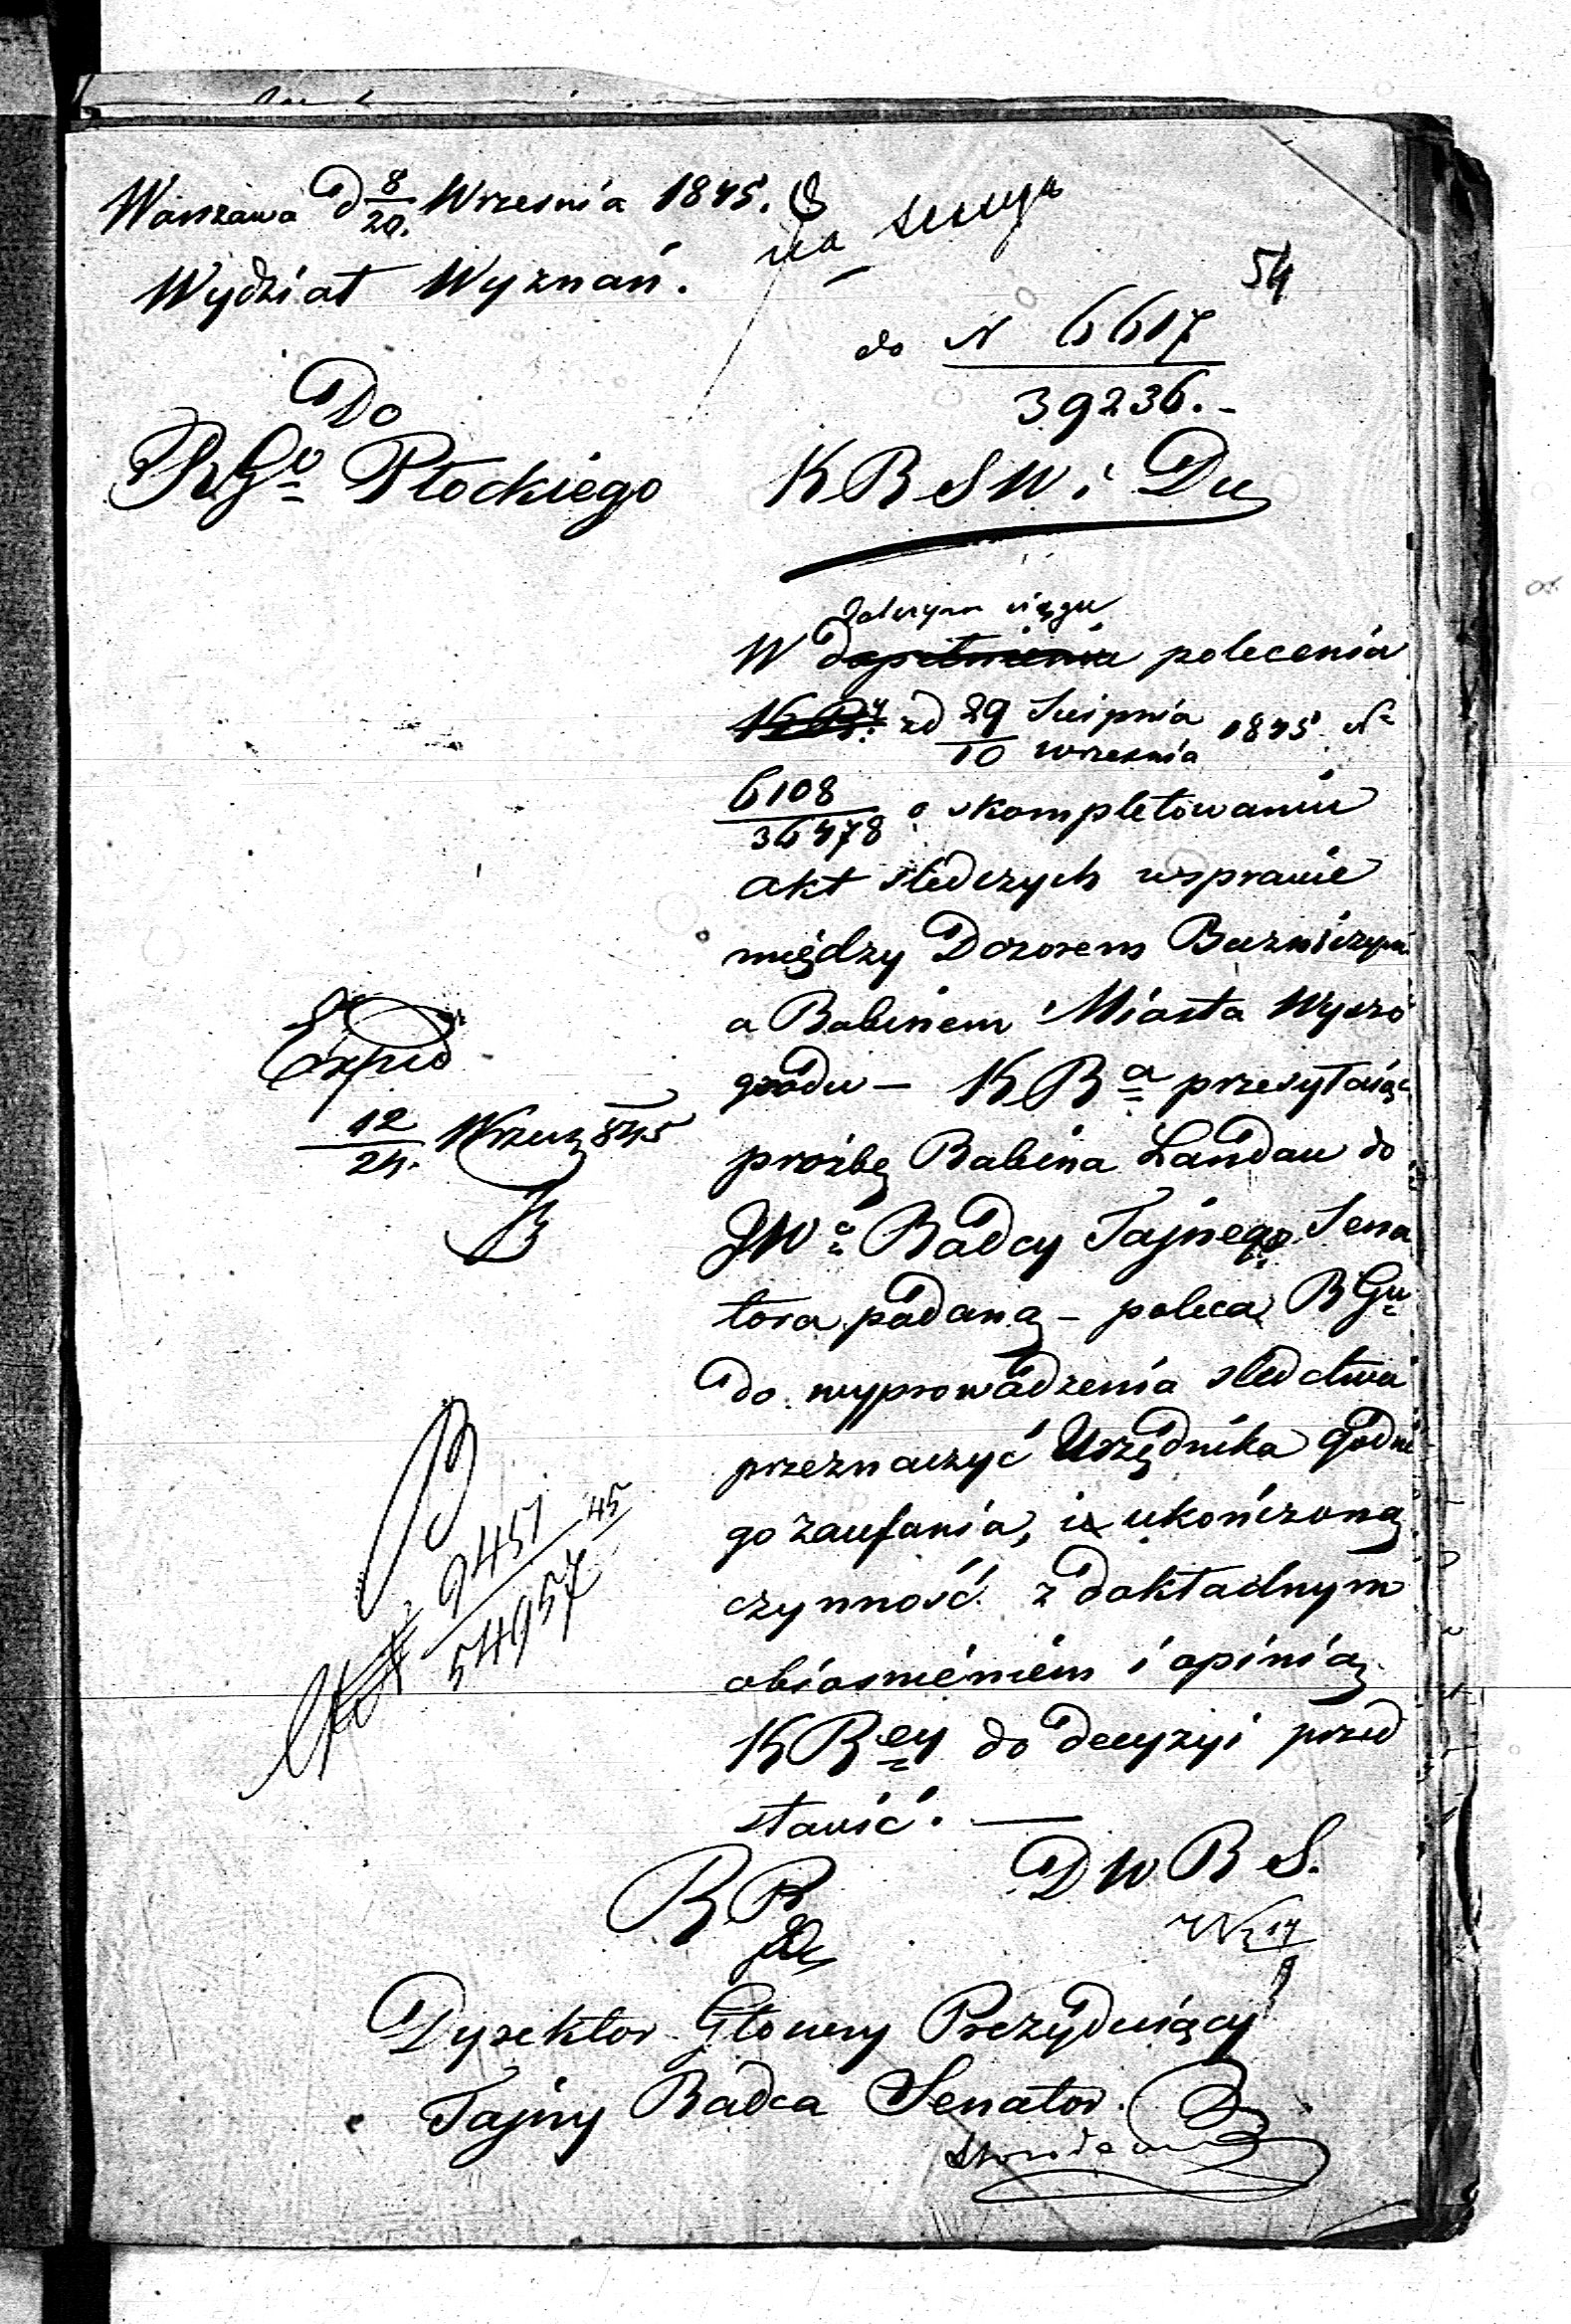 Warszawa d 8/20. Września 1845.
na sessyą
Wydział Wyznań.
54
do N 6617/39236.-
Do
RGo Płockiego
KRSW i Du
dalszym ciągu
W dopełnieniu polecenia
KRy zd 29 Sierpnia/10 Września 1845 No
6108/36478 o skompletowaniu
akt śledczych wsprawie
między Dozorem Bużniczym
a Rabinem Miasta Wyszo
grodu - KRa przesyłaiąc
prożbę Rabina Landau do
JWo Radcy Tajnego Sena
tora podaną - poleca RGu
do wyprowadzenia śledctwa
przeznaczyć Urzędnika godne
go zaufania, i ukończoną
czynność z dokładnym
obiasnieniem i opinią
KRey do decyzyi przed
stawić. —
Expid
12/24. Wrześ 845
9451/54957 45
DWRS.
RR
Dyrektor Głowny Prezyduiący
Tajny Radca Senator.